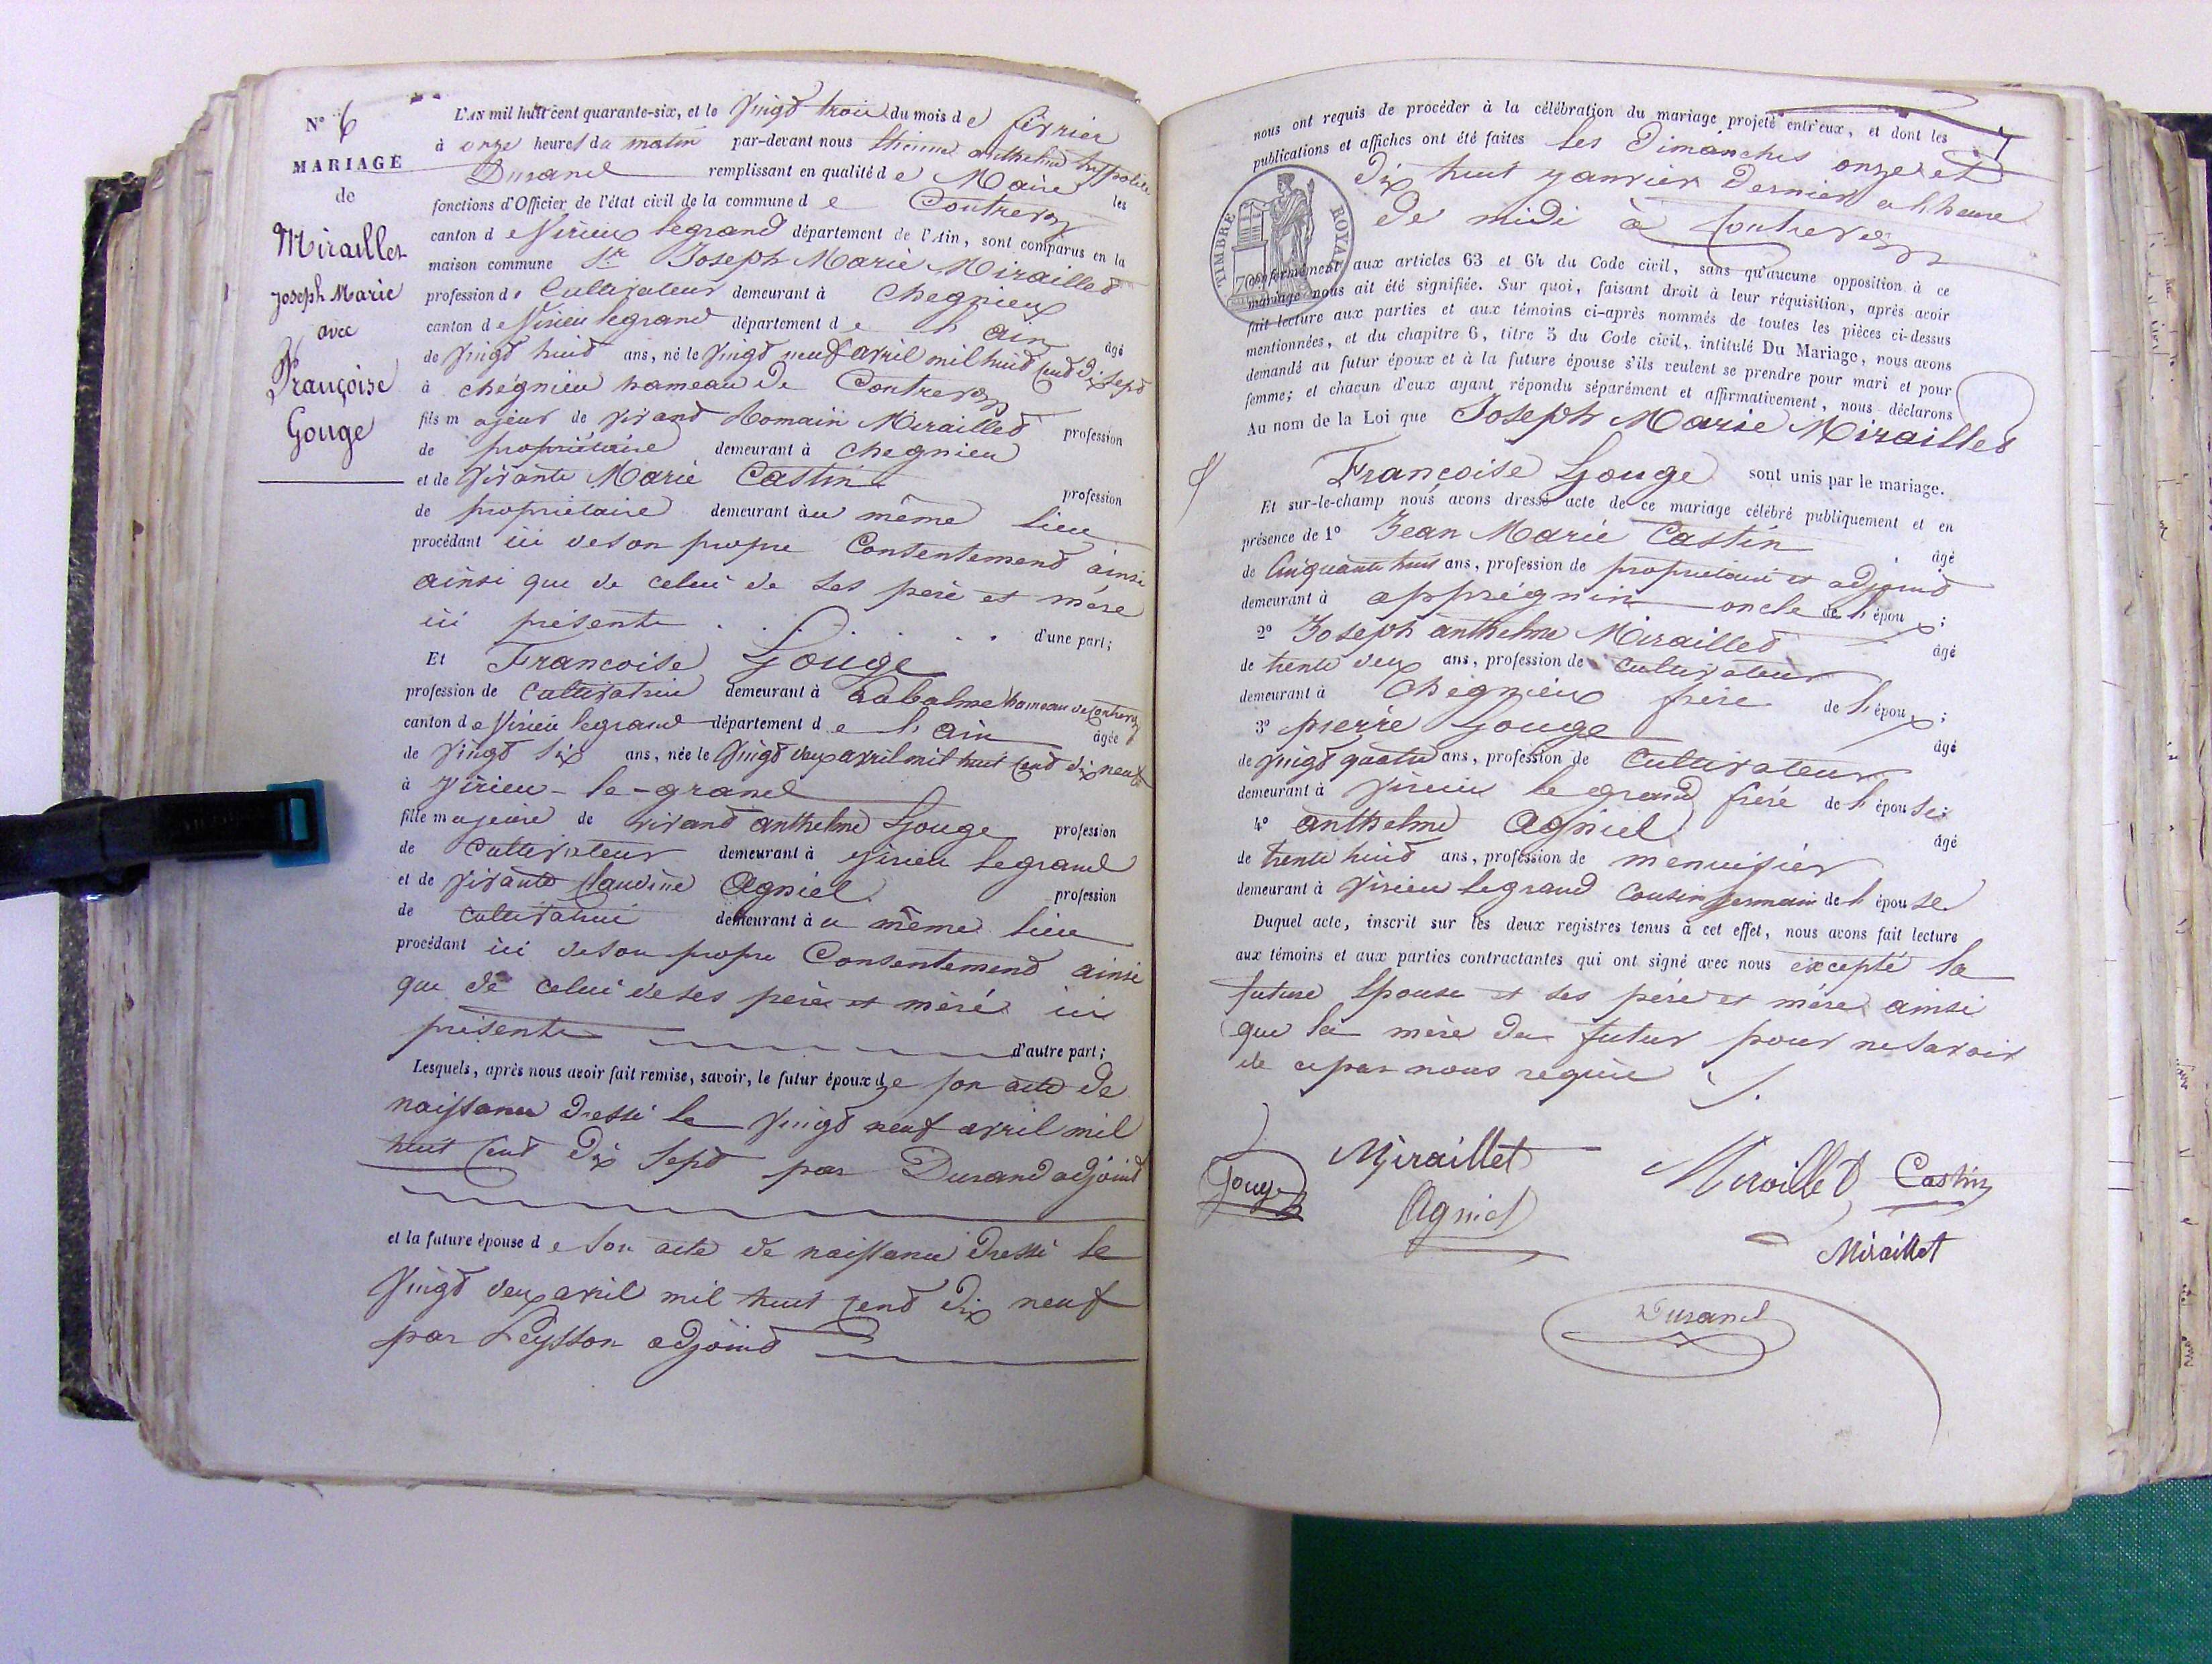 N° 6
MARIAGE
de
Miraillet
Joseph Marie
avec
Françoise
Gouge
L'AN mil huit cent quarante-six, et le vingt trois du mois de février
à onze heures du matin par-devant nous étienne anthelme hyppolite
Durand remplissant en qualité de Maire les
fonctions d'Officier de l'état civil de la commune de Contrevoz
canton de Virieu legrand département de l'Ain, sont comparus en la
maison commune Sr Joseph Marie Miraillet
profession de Cultivateur demeurant à Chegnieu
canton de Virieu legrand département de l'ain âgé
de vingt huit ans, né le vingt neuf avril mil huit cent dix sept
à chégnieu hameau de Contrevoz
fils majeur de vivant Romain Miraillet profession
de propriétaire demeurant à chegnieu
et de vivante Marie Castin profession
de propriétaire demeurant àu même lieu
procédant ici de son propre Consentement ainsi
ainsi que de celui de ses père et mère
ici présents . . . . . . d'une part;
Et Francoise Gouge
profession de cultivatrice demeurant à Labalme hameau de Contrevoz
canton de Virieu legrand département de l'ain âgée
de vingt six ans, née le vingt deux avril mil huit cent dix neuf
à Virieu-le-grand
fille majeure de vivant anthelme Gouge profession
de Cultivateur demeurant à virieu legrand
et de vivante Claudine Agniel profession
de cultivatrice demeurant àu même lieu
procédant ici de son propre Consentement ainsi
que de celui de ses père et mère ici
présents d'autre part;
Lesquels, après nous avoir fait remise, savoir, le futur époux de son acte de
naissance dressé le vingt neuf avril mil
huit cent dix sept par Durand adjoint
et la future épouse de son acte de naissance dressé le
vingt deux avril mil huit cent dix neuf
par Peysson adjoint
7
nous ont requis de procéder à la célébration du mariage projeté entr'eux, et dont les
publications et affiches ont été faites les Dimanches onze et
dix huit janvier dernier a l'heure
de midi à Contrevoz
TIMBRE ROYAL
conformément aux articles 63 et 64 du Code civil, sans qu'aucune opposition à ce
mariage nous ait été signifiée. Sur quoi, faisant droit à leur réquisition, après avoir
fait lecture aux parties et aux témoins ci-après nommés de toutes les pièces ci-dessus
mentionnées, et du chapitre 6, titre 5 du Code civil, intitulé Du Mariage, nous avons
demandé au futur époux et à la future épouse s'ils veulent se prendre pour mari et pour
femme; et chacun d'eux ayant répondu séparément et affirmativement, nous déclarons
Au nom de la Loi que Joseph Marie Miraillet
& Francoise Gouge sont unis par le mariage.
Et sur-le-champ nous avons dressé acte de ce mariage célébré publiquement et en
présence de 1° Jean Marie Castin âgé
de Cinquante huit ans, profession de propriétaire et adjoint
demeurant à apprégnin oncle de l'époux;
2° Joseph anthelme Miraillet âgé
de trente deux ans, profession de cultivateur
demeurant à Chegnieu frère de l'époux;
3° pierre Gouge âgé
de vingt quatre ans, profession de Cultivateur
demeurant à virieu legrand frère de l'épouse;
4° anthelme Agniel âgé
de trente huit ans, profession de menuisier
demeurant à virieu legrand cousin germain de l'épouse
Duquel acte, inscrit sur les deux registres tenus à cet effet, nous avons fait lecture
aux témoins et aux parties contractantes qui ont signé avec nous excepté la
future épouse et ses père et mère ainsi
que la mère du futur pour ne savoir
de ce par nous requis
Miraillet Miraillet Castin
Gouge
Agniel
Miraillet
Durand